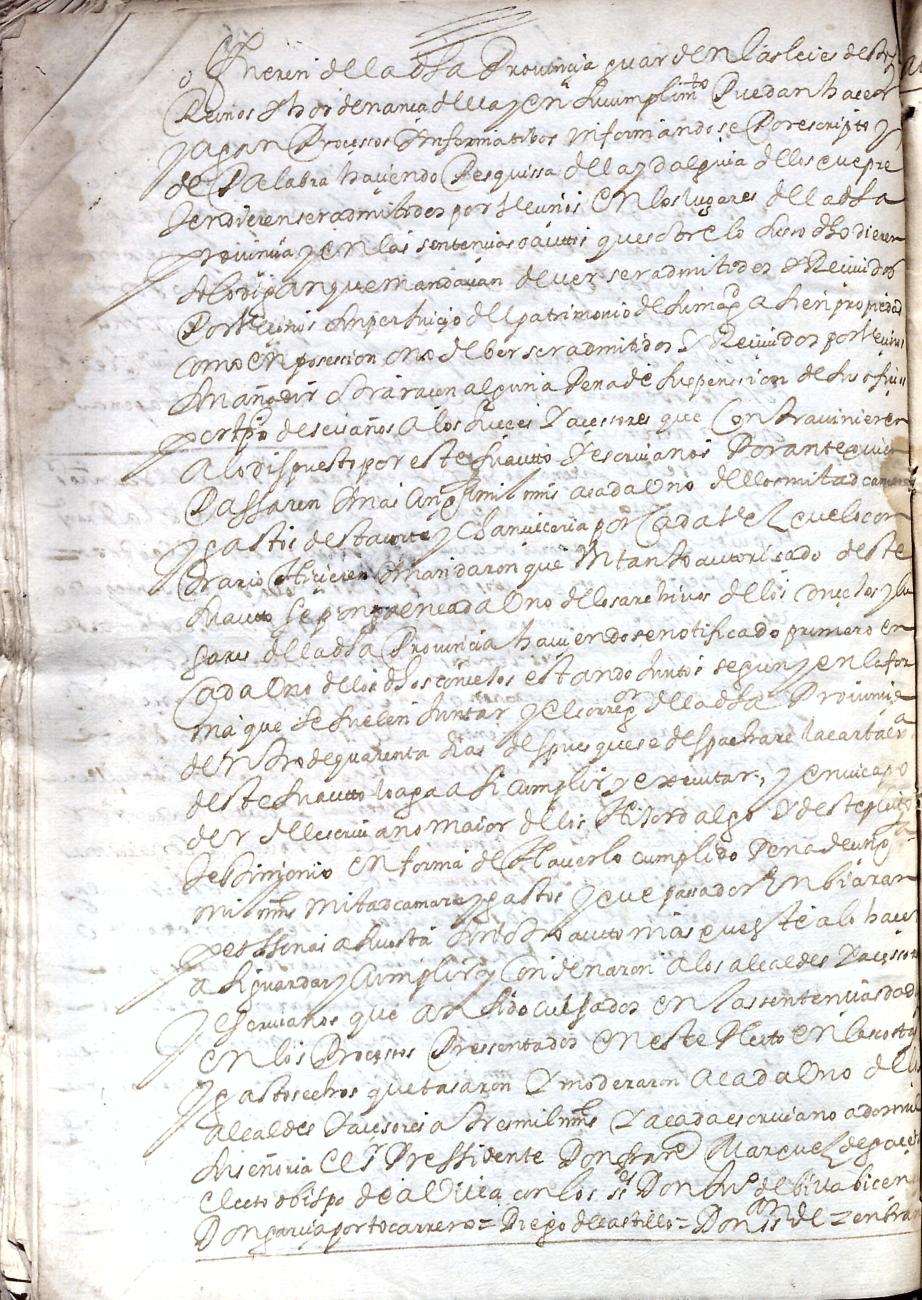 o fueren de la dha Provincia guarden las leies destos
Reinos y hordenanza della y en su cumplimto Puedan hacer
y agan Procesos Informatibos informandose Por escripto y
de Palabra haciendo Pesquissa de la ydalguia dellos que pre
tendieren ser admitidos por Vecinos en los lugares de la dha
provincia y en las sentencias o auttos que sobre lo suso dho dieren
solo digan que mandavan dever ser admitidos y Recividos
Por Vecinos sin perjuicio del patrimonio de su magd asi en propiedad
como en posession o no deber ser admitidos y Recividos por Vecinos
sin añadir otra racon alguna Pena de suspension de sus oficios
por tpo de seis años a los Jueces y acesores que Contravinieren
a lo dispuesto por este su autto y escrivanos Por ante quien
Passaren y mas cinqta mil mrs a cada Uno dellos mitad camara
y gastos desta corte y Chancilleria por Cada Vez que lo con
trario hicieren y mandaron que Un tanto autorisado deste
su autto se ponga en cada Uno de los archivos de los concejos y lu
gares de la dha Provincia haviendose notificado primero en
Cada Uno de los dhos concejos estando juntos segun y en la for
ma que se suelen juntar y el corregor de la dha Provincia
dentro de quarenta dias despues que se despachare la carta exra
deste su autto lo aga asi cumplir y executar, y envie a po
der del escrivano maior de los Hijosdalgo y deste pleito
testimonio en forma de haverlo cumplido Pena de cinqta
mil mrs mitad camara y gastos y que passado inbiaran
perssona a su costa dho autto mas que este a lo hacer
asi guardar y cumplir y Condenaron a los alcaldes y acessores
y escrivanos que an sido culpados en las sentencias dadas
en los Procesos Pressentados en este Pleito en las costas
y gastos echos que tasaron y moderaron a cada Uno de los
alcaldes y acesores a tres mil mrs y a cada escrivano a dos mil
su señoria el sr Pressidente Don franco Marquez de gacetta
electo obispo de aVila con los ss Don Juo de billabicen
Don garcia portocarrero = Diego del castillo = Don de zenbra